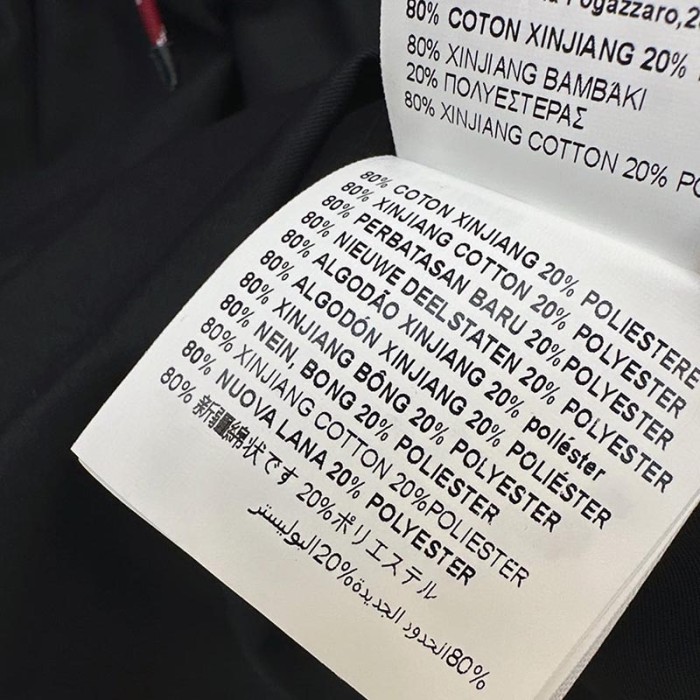 Fogazzaro,2
80% COTON XINJIANG 20%
80% XINJIANG BAMBAKI
20% ΠΟΛΥΕΣΤΕΡΑΣ
80% XINJIANG COTTON 20% PO
80% COTON XINJIANG 20% POLIESTERE
80% XINJIANG COTTON 20% POLYESTER
80% PERBATASAN BARU 20%POLYESTER
80% NIEUWE DEELSTATEN 20% POLYESTER
80% ALGODÃO XINJIANG 20% poliéster
80% ALGODÓN XINJIANG 20% POLIÉSTER
80% XINJIANG BÔNG 20% POLYESTER
80% NEIN, BONG 20% POLIESTER
80% XINJIANG COTTON 20%POLIESTER
80% NUOVA LANA 20% POLYESTER
80% 新疆綿状です 20%ポリエステル
80%الحدود الجديدة20%البوليستر